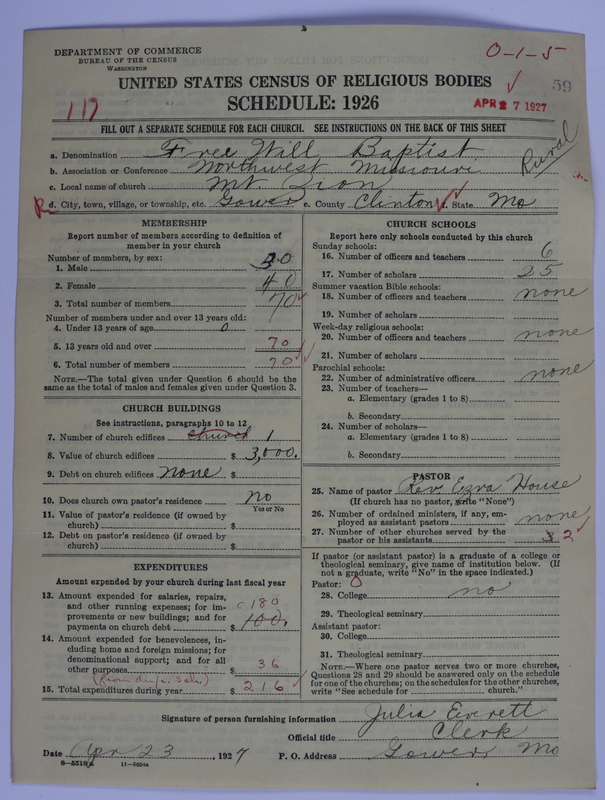 DEPARTMENT OF COMMERCE
BUREAU OF THE CENSUS
WASHINGTON
0-1-5
UNITED STATES CENSUS OF RELIGIOUS BODIES
59
SCHEDULE: 1926
117
APR 27 1927
FILL OUT A SEPARATE SCHEDULE FOR EACH CHURCH. SEE INSTRUCTIONS ON THE BACK OF THIS SHEET
a. Denomination Free Will Baptist
b. Association or Conference Northwest Missouri
Rural
c. Local name of church Mt. Zion
R d. City, town, village, or township, etc. Gower e. County Clinton f. State Mo
MEMBERSHIP
Report number of members according to definition of
member in your church
Number of members, by sex:
1. Male 30
2. Female 40
3. Total number of members 70
Number of members under and over 13 years old:
4. Under 13 years of age 0
5. 13 years old and over 70
6. Total number of members 70
NOTE.—The total given under Question 6 should be the
same as the total of males and females given under Question 3.
CHURCH BUILDINGS
See instructions, paragraphs 10 to 12
7. Number of church edifices church 1
8. Value of church edifices $ 3,000.
9. Debt on church edifices none $
10. Does church own pastor's residence no
Yes or No
11. Value of pastor's residence (if owned by
church) $
12. Debt on pastor's residence (if owned by
church) $
EXPENDITURES
Amount expended by your church during last fiscal year
13. Amount expended for salaries, repairs,
and other running expenses; for im-
provements or new buildings; and for
payments on church debt $ 100.
c 180
14. Amount expended for benevolences, in-
cluding home and foreign missions; for
denominational support; and for all
other purposes $ 36
15. Total expenditures during year $ 216
CHURCH SCHOOLS
Report here only schools conducted by this church
Sunday schools:
16. Number of officers and teachers 6
17. Number of scholars 25
Summer vacation Bible schools:
18. Number of officers and teachers none
19. Number of scholars
Week-day religious schools:
20. Number of officers and teachers none
21. Number of scholars
Parochial schools:
22. Number of administrative officers none
23. Number of teachers—
a. Elementary (grades 1 to 8)
b. Secondary
24. Number of scholars—
a. Elementary (grades 1 to 8)
b. Secondary
PASTOR
25. Name of pastor Rev. Ezra House
(If church has no pastor, write "None")
26. Number of ordained ministers, if any, em-
ployed as assistant pastors none
27. Number of other churches served by the
pastor or his assistants 3 2
If pastor (or assistant pastor) is a graduate of a college or
theological seminary, give name of institution below. (If
not a graduate, write "No" in the space indicated.)
Pastor: 0
28. College no
29. Theological seminary
Assistant pastor:
30. College
31. Theological seminary
NOTE.—Where one pastor serves two or more churches,
Questions 28 and 29 should be answered only on the schedule
for one of the churches; on the schedules for the other churches,
write "See schedule for church."
Signature of person furnishing information Julia Everett
Official title Clerk
Date Apr 23, 1927 P. O. Address Gower, Mo
8-5518a 11-9054a